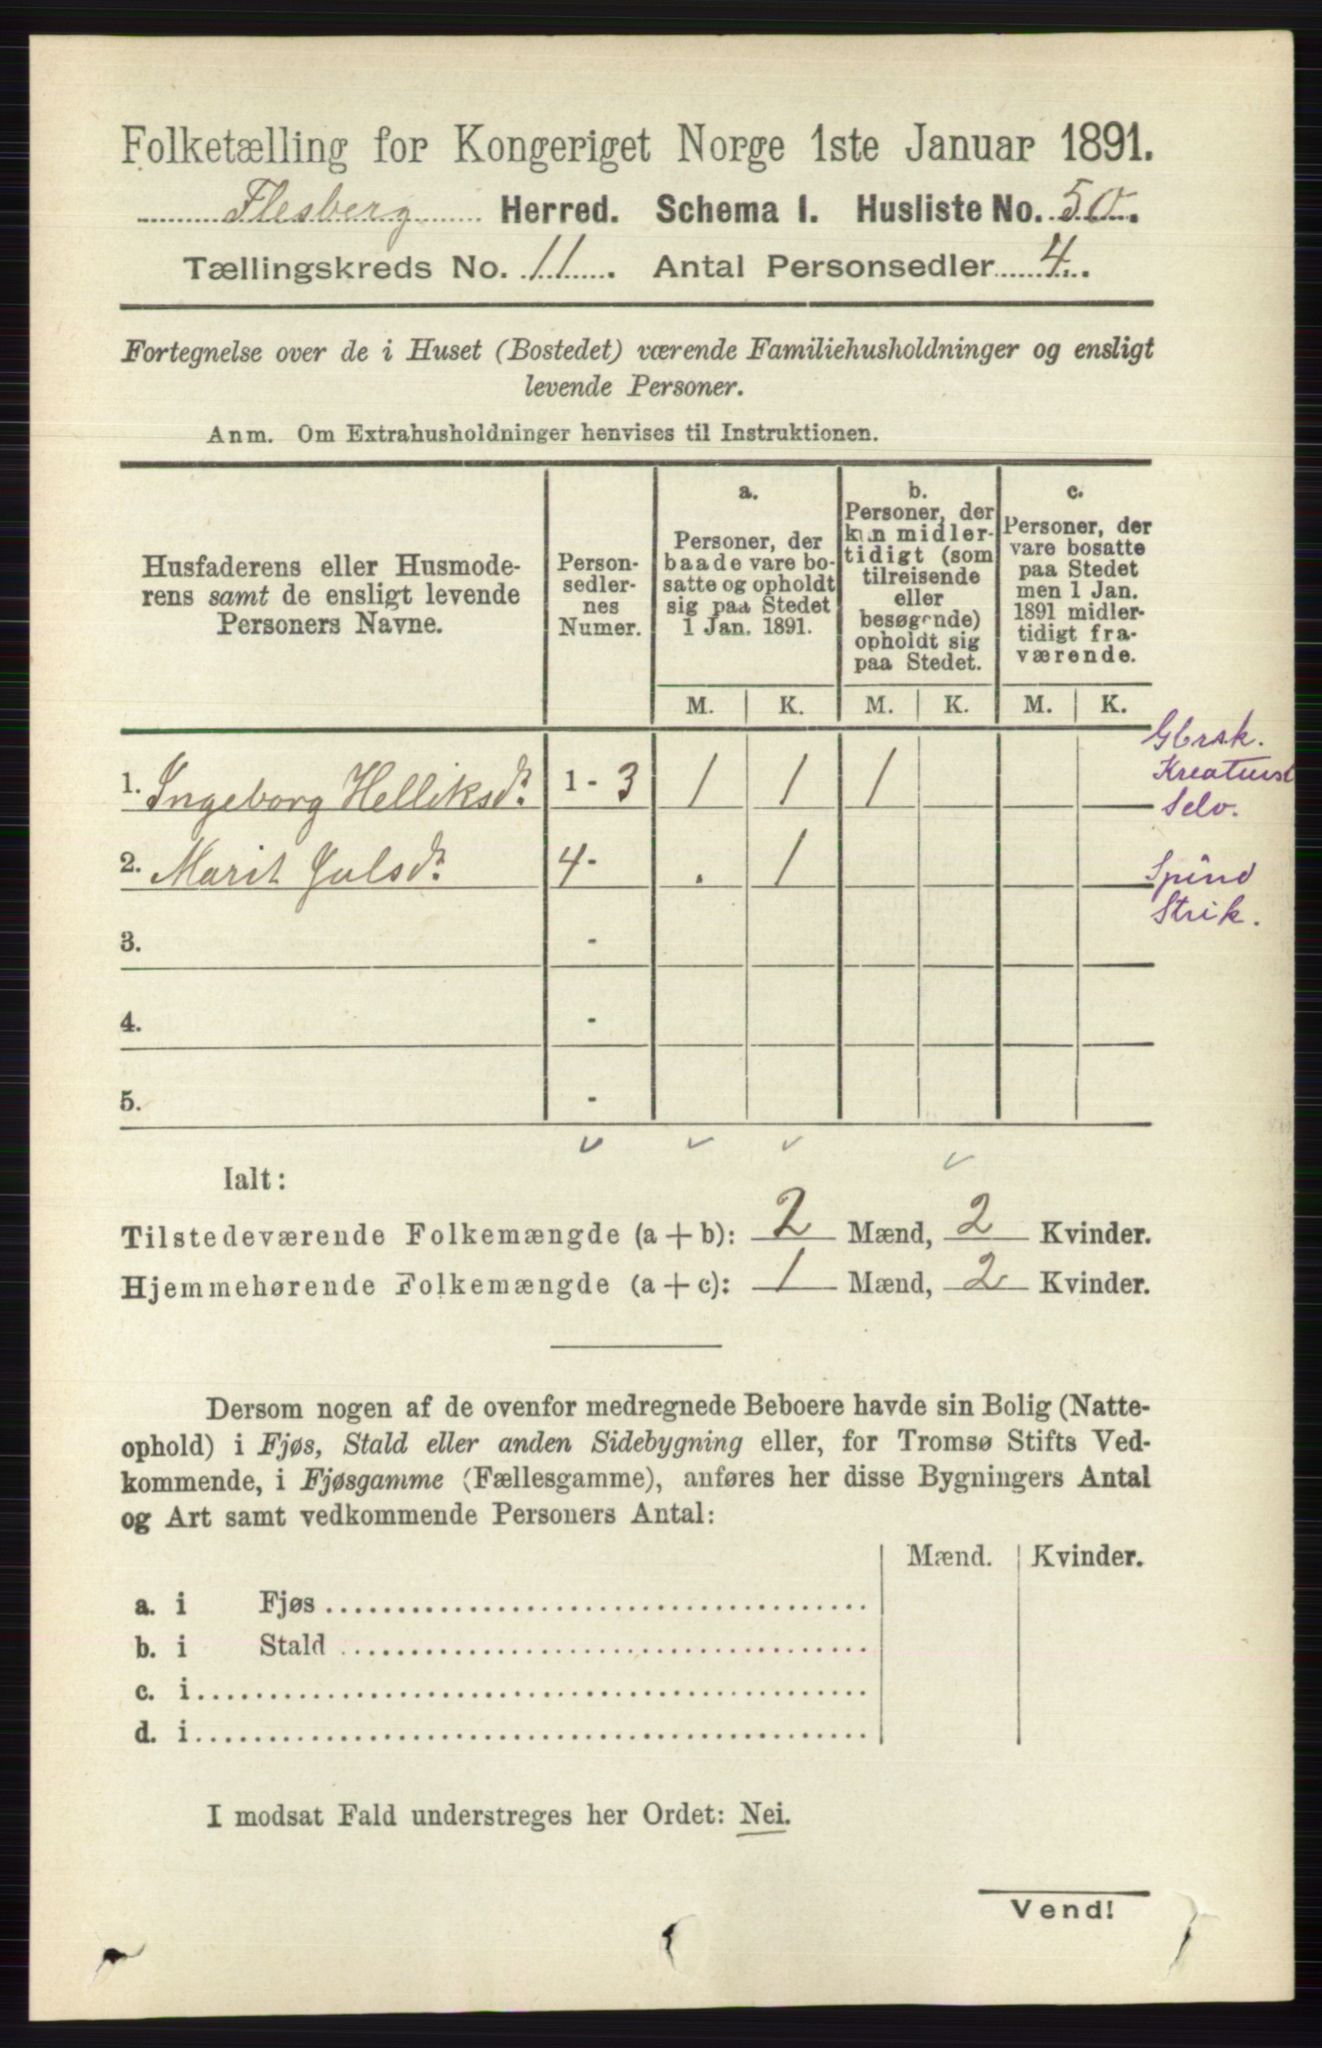 Folketælling for Kongeriget Norge 1ste Januar 1891.
Flesberg Herred. Schema I. Husliste No. 50.
Tællingskreds No. 11. Antal Personsedler 4.
Fortegnelse over de i Huset (Bostedet) værende Familiehusholdninger og ensligt
levende Personer.
Anm. Om Extrahusholdninger henvises til Instruktionen.
Husfaderens eller Husmode-
rens samt de ensligt levende
Personers Navne.
Person-
sedler-
nes
Numer.
a.
Personer, der
baade vare bo-
satte og opholdt
sig paa Stedet
1 Jan. 1891.
b.
Personer, der
kun midler-
tidigt (som
tilreisende
eller
besøgende)
opholdt sig
paa Stedet.
c.
Personer, der
vare bosatte
paa Stedet
men 1 Jan.
1891 midler-
tidigt fra-
værende.
M. K. M. K. M. K.
1. Ingeborg Helliksdr. 1 - 3 1 1 1
Gbrsk.
Kreaturst
Selv.
2. Marit Julsdr. 4 - . 1
Spind
Strik.
3. -
4. -
5. -
Ialt:
Tilstedeværende Folkemængde (a + b): 2 Mænd, 2 Kvinder.
Hjemmehørende Folkemængde (a + c): 1 Mænd, 2 Kvinder.
Dersom nogen af de ovenfor medregnede Beboere havde sin Bolig (Natte-
ophold) i Fjøs, Stald eller anden Sidebygning eller, for Tromsø Stifts Ved-
kommende, i Fjøsgamme (Fællesgamme), anføres her disse Bygningers Antal
og Art samt vedkommende Personers Antal:
Mænd. Kvinder.
a. i Fjøs
b. i Stald
c. i
d. i
I modsat Fald understreges her Ordet: Nei.
Vend!